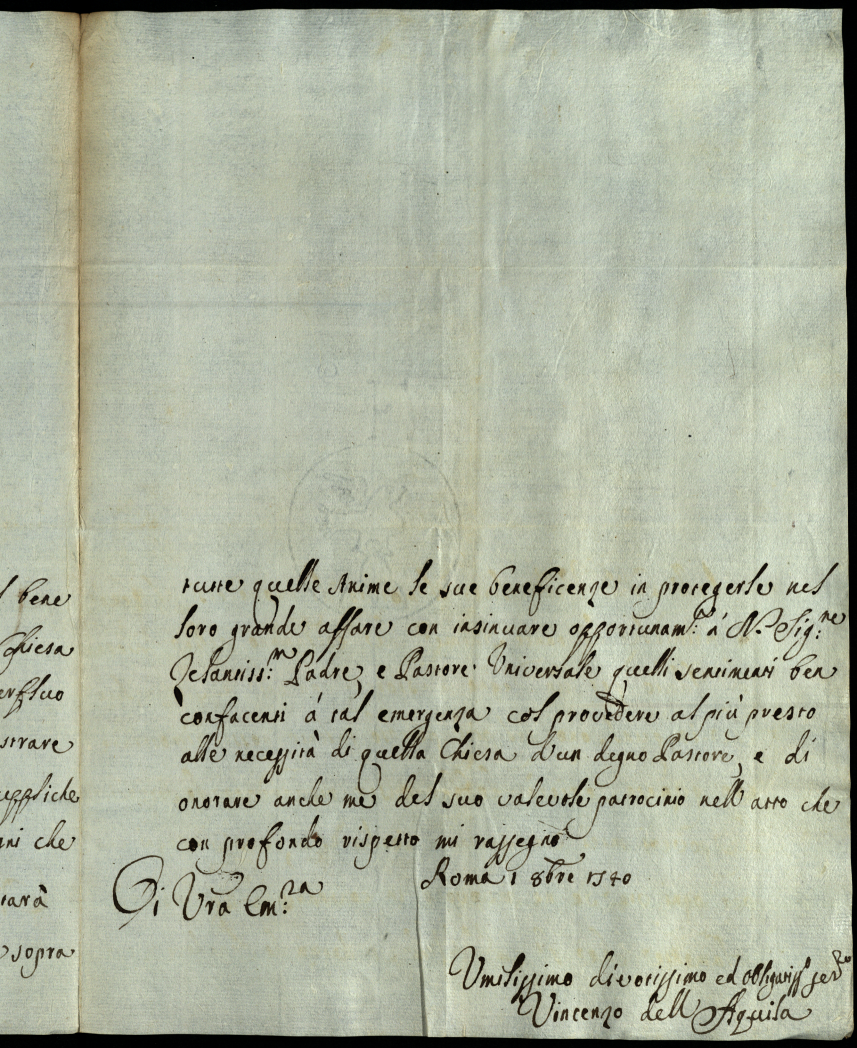 l bene
Chiesa
erfluo
strare
uppliche
ni che
tarà
sopra
tutte quelle Anime le sue beneficenze in protegerle nel
loro grande affare con insinuare opportunam:te á N. Sig:re
Zelantiss:mo Padre, e Pastore Universale quelli sentimenti ben
confacenti á tal emergenza col provedere al più presto
alle necessità di quella Chiesa d'un degno Pastore, e di
onorare anche me del suo valevole patrocinio nell'atto che
con profondo rispetto mi rassegno
Di Vra Em:za
Roma 1 8bre 1740
Umilissimo divotissimo ed obligatisso servo
Vincenzo dell'Aquila